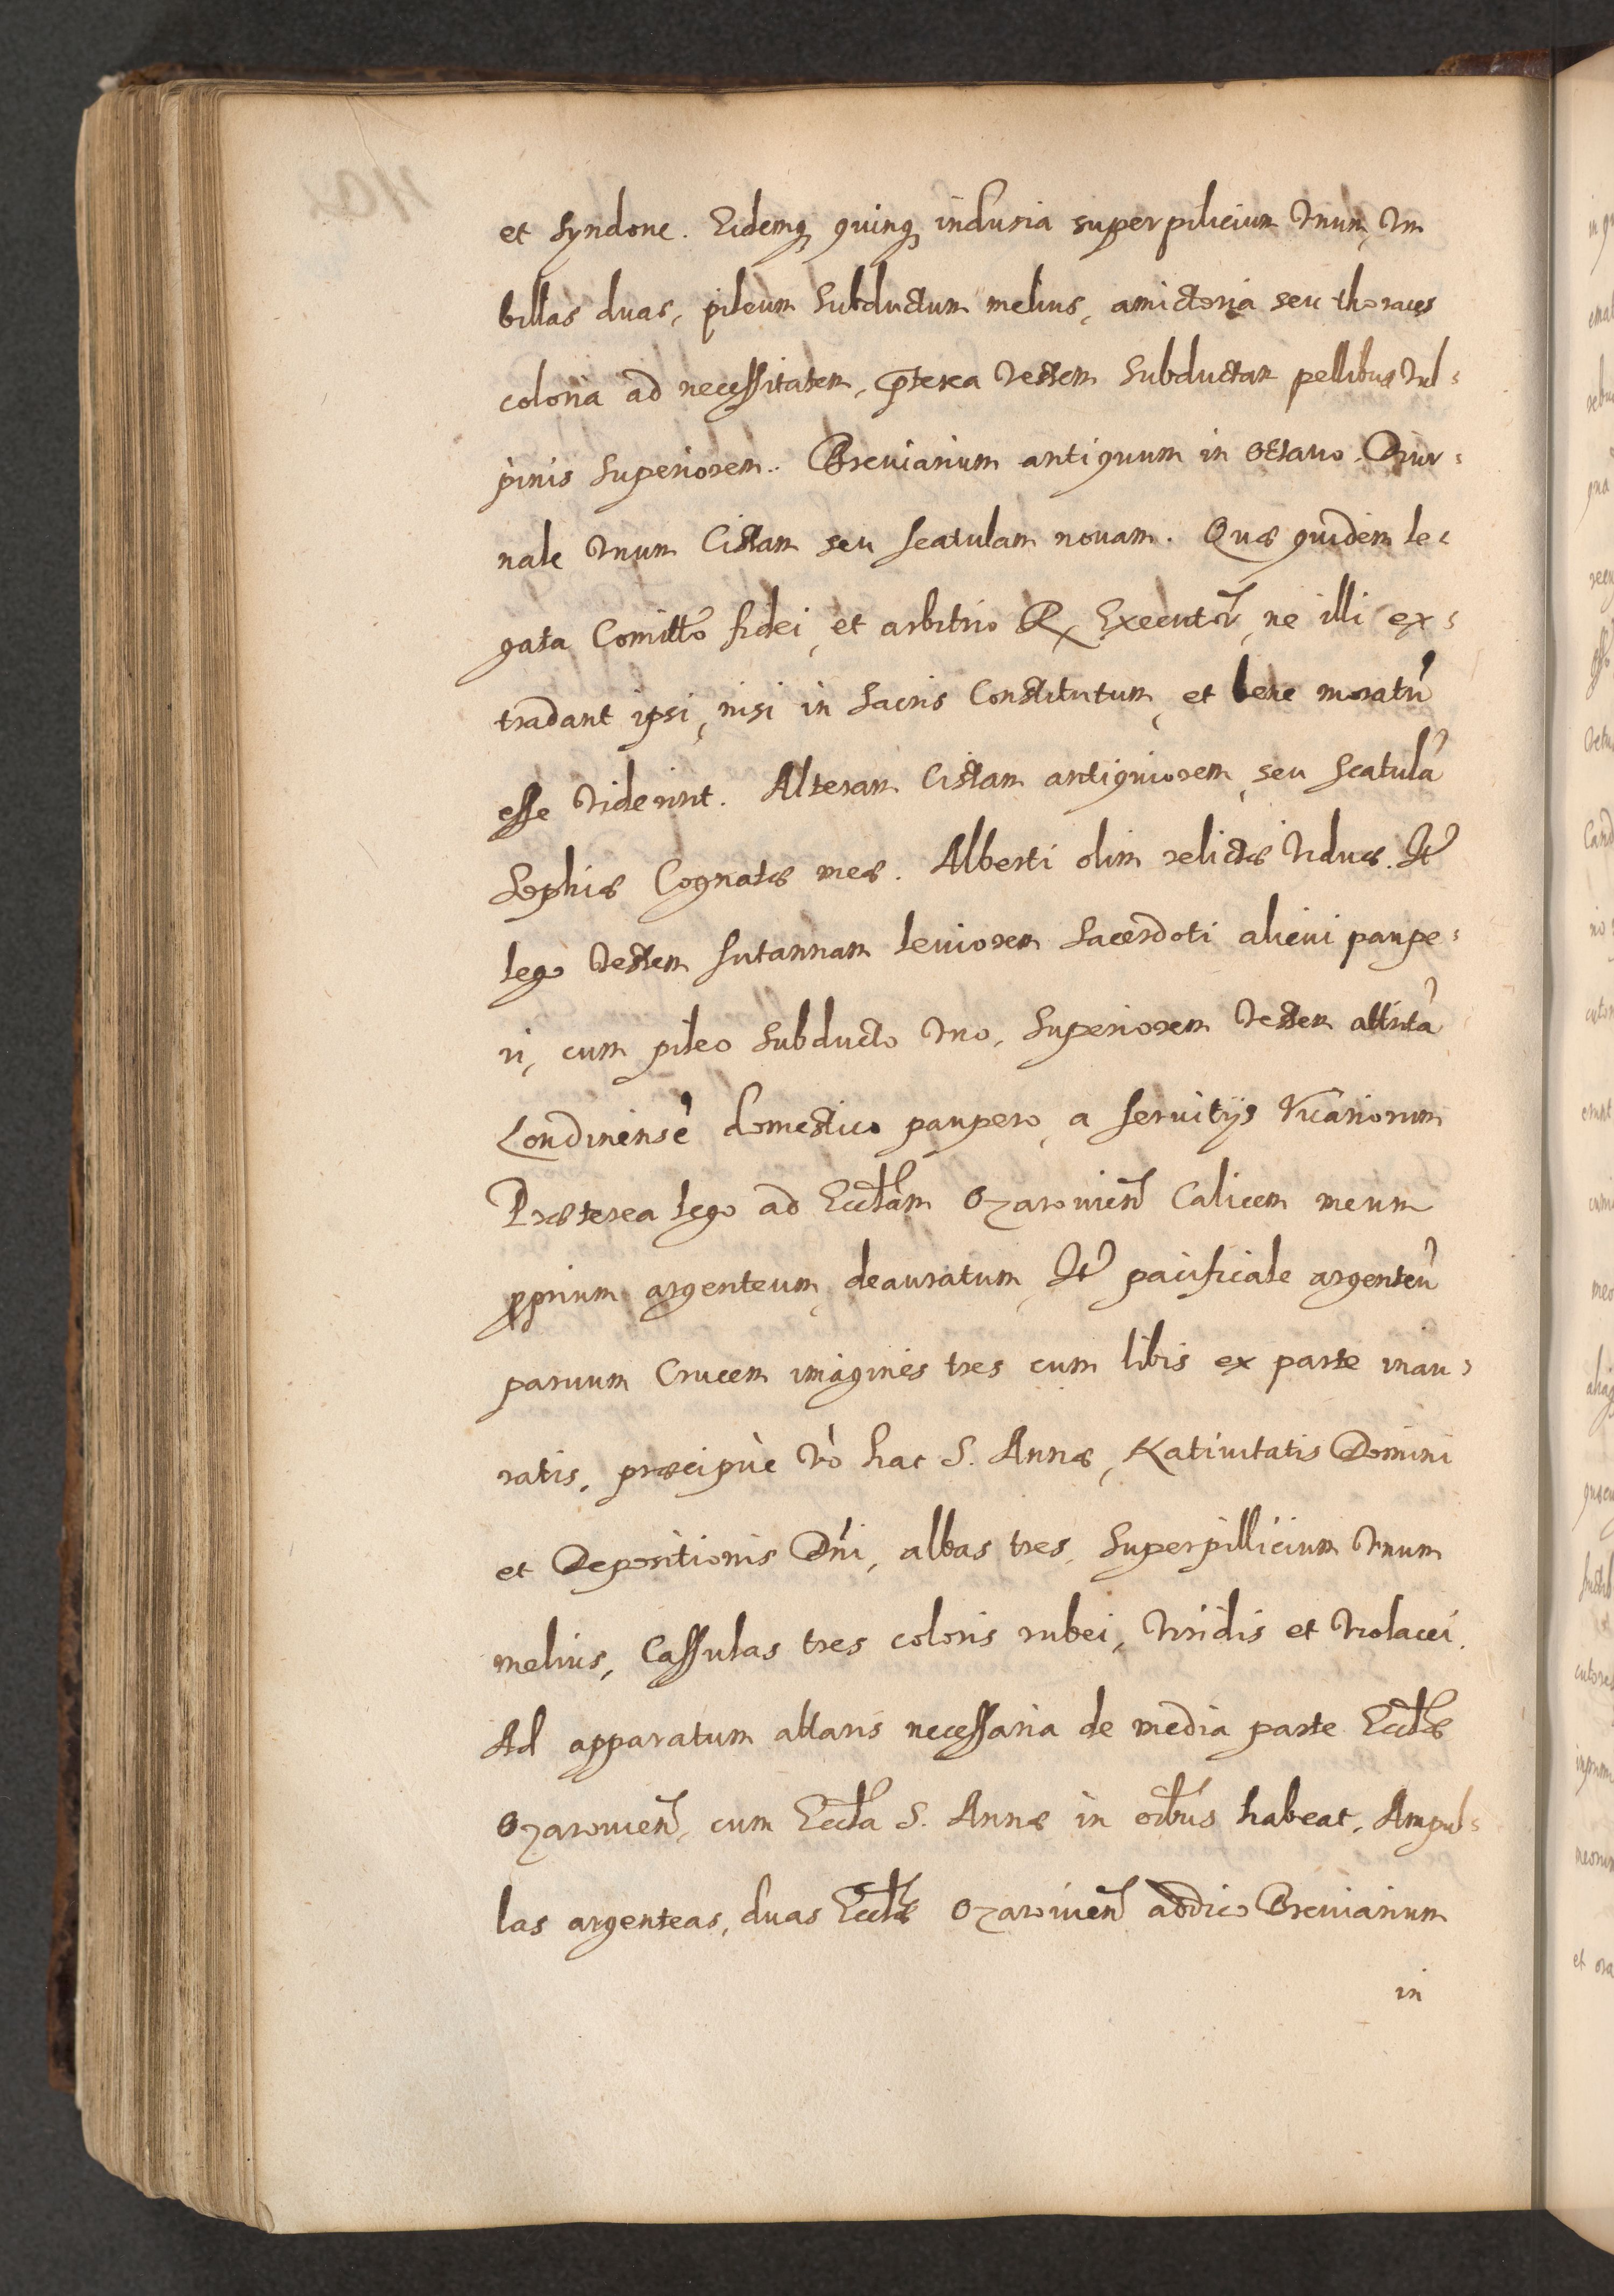 et Syndone. Eidemq; quinq; indusia superpilicium Vnum, Vm
billas duas, pileum Subductum melius, amictoria seu thoraces
coloria ad necessitatem, p̄terea Vestem Subductam pellibus Vul=
pinis Superiorem. Breviarium antiquum in octavo. Diur=
nale Vnum Cistam seu scatulam novam. Quæ quidem le=
gata Comitto fidei, et arbitrio R. Executor, ne illi ex=
tradant ipsi, nisi in Sacris Constitutum, et bene moratū
esse Viderint. Alteram Cistam antiquiorem, seu Scatulā
Sophiæ Cognatæ meæ. Alberti olim relictæ Viduæ. It
lego Vestem Sutannam leviorem Sacerdoti alicui paupe=
ri, cum pileo Subducto Vno, Superiorem Vestem attritā
Londinensē domestico paupero, a servitijs Vicariorum
Præterea lego ad Ecctam Ozarovien Calicem meum
pprium argenteum, deauratum, It pacificale argenteū
parvum Crucem imagines tres cum libis ex parte inau=
ratis, præcipuè Vò hac S. Annæ, Nativitatis Domini
et Depositionis Dni, albas tres, Superpillicium Vnum
melius, Cassulas tres coloris rubei, Viridis et Violacei.
Ad apparatum altaris necessaria de media parte Ecctæ
Ozarovien, cum Eccta S. Annæ in oibus habeat, Ampul=
las argenteas, duas Ecctæ Ozarovien addico Breviarium
in